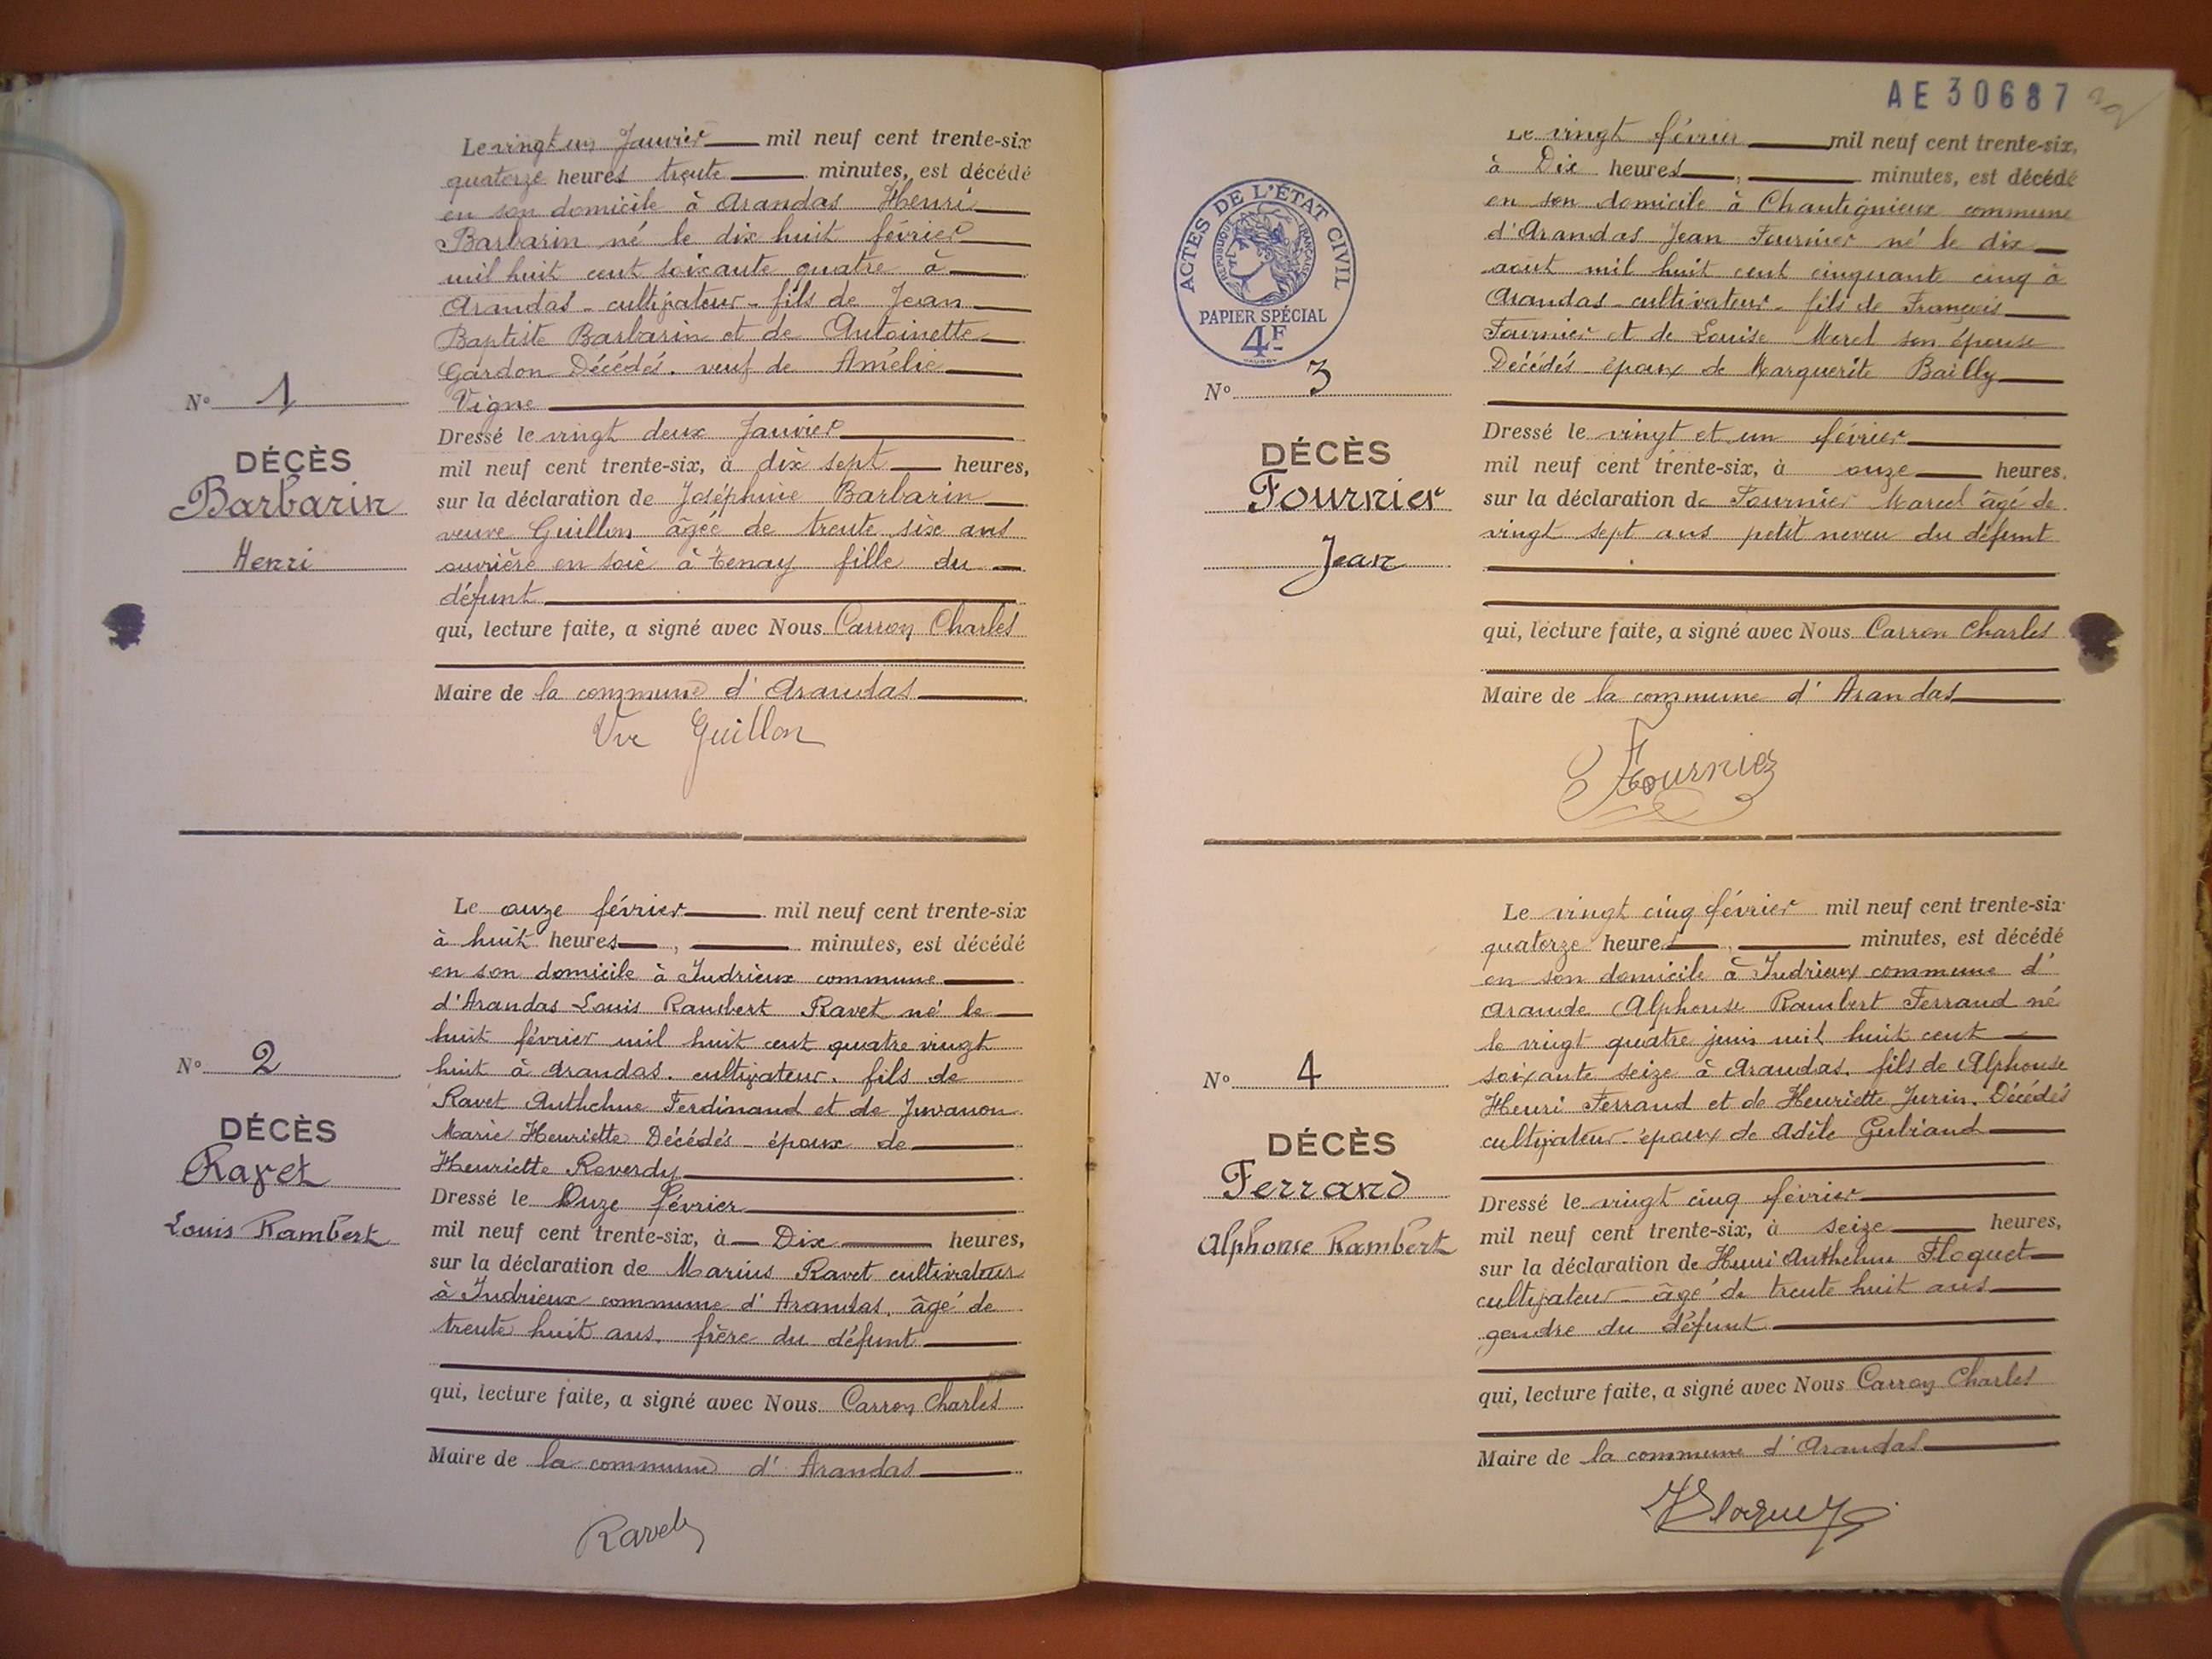 Le vingt un Janvier mil neuf cent trente-six
quatorze heures trente minutes, est décédé
en son domicile à Arandas Henri
Barbarin né le dix huit février
mil huit cent soixante quatre à
Arandas - cultivateur - fils de Jean
Baptiste Barbarin et de Antoinette
Gardon Décédés. veuf de Amélie
Vigne
N° 1
DÉCÈS
Barbarin
Henri
Dressé le vingt deux Janvier
mil neuf cent trente-six, à dix sept heures,
sur la déclaration de Joséphine Barbarin
veuve Guillon âgée de trente six ans
ouvrière en soie à Tenay fille du
défunt
qui, lecture faite, a signé avec Nous Carron Charles
Maire de la commune d'Arandas
Vve Guillon
Le onze février mil neuf cent trente-six
à huit heures, minutes, est décédé
en son domicile à Indrieux commune
d'Arandas Louis Rambert Ravet né le
huit février mil huit cent quatre vingt
huit à Arandas. cultivateur. fils de
Ravet Anthelme Ferdinand et de Juvanon
Marie Henriette Décédés - époux de
Henriette Reverdy
N° 2
DÉCÈS
Ravet
Louis Rambert
Dressé le Onze février
mil neuf cent trente-six, à Dix heures,
sur la déclaration de Marius Ravet cultivateur
à Indrieux commune d'Arandas, âgé de
trente huit ans. frère du défunt
qui, lecture faite, a signé avec Nous Carron Charles
Maire de la commune d'Arandas
Ravet
AE 30687
ACTES DE L'ÉTAT CIVIL
RÉPUBLIQUE FRANÇAISE
PAPIER SPÉCIAL
4F
Le vingt février mil neuf cent trente-six,
à Dix heures, minutes, est décédé
en son domicile à Chantignieux commune
d'Arandas Jean Fournier né le dix
août mil huit cent cinquante cinq à
Arandas - cultivateur - fils de François
Fournier et de Louise Morel son épouse
Décédés - époux de Marguerite Bailly
N° 3
DÉCÈS
Fournier
Jean
Dressé le vingt et un février
mil neuf cent trente-six, à onze heures,
sur la déclaration de Fournier Marcel âgé de
vingt sept ans petit neveu du défunt
qui, lecture faite, a signé avec Nous Carron Charles
Maire de la commune d'Arandas
Fournier
Le vingt cinq février mil neuf cent trente-six
quatorze heures, minutes, est décédé
en son domicile à Indrieux commune d'
Arande Alphonse Rambert Ferrand né
le vingt quatre juin mil huit cent
soixante seize à Arandas. fils de Alphonse
Henri Ferrand et de Henriette Jurin. Décédés
cultivateur - époux de Adèle
N° 4
DÉCÈS
Ferrand
Alphonse Rambert
Dressé le vingt cinq février
mil neuf cent trente-six, à seize heures,
sur la déclaration de Henri Anthelme Floquet
cultivateur - âgé de trente huit ans
gendre du défunt
qui, lecture faite, a signé avec Nous Carron Charles
Maire de la commune d'Arandas
Floquet